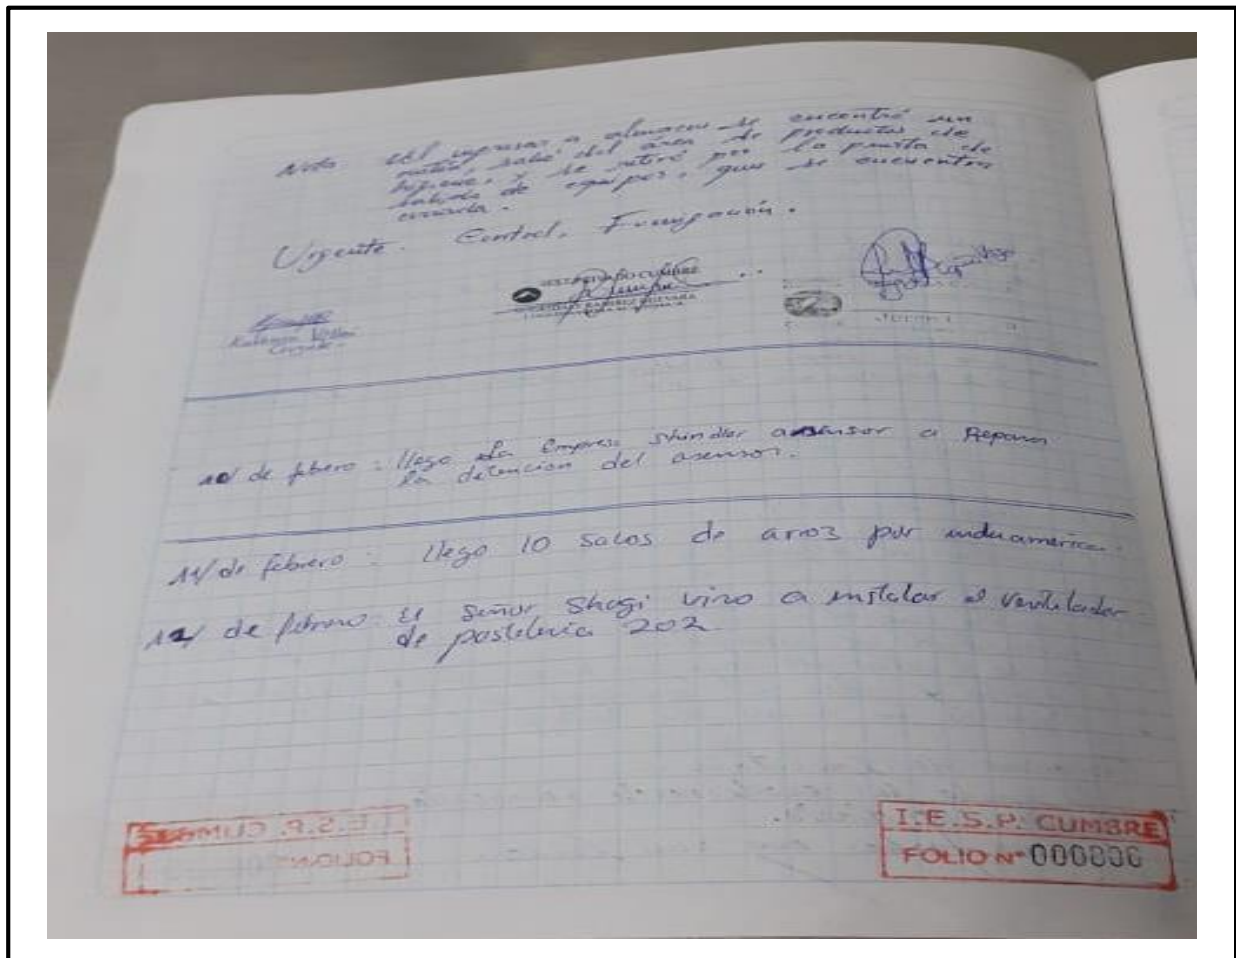 Nota Al ingresar a almacen se encontró un
salió del área de productos de
higiene, y se retiró por la puerta de
salida de equipos, que se encuentra
cerrada.
Urgente. Control, Fumigación.
10/ de febrero : llego la Empresa shindler asensor a Reparar
la detencion del asensor.
11/ de febrero : llego 10 sacos de arroz por induamerica.
12/ de febrero : El señor Shagi vino a instalar el ventilador
de pasteleria 202
I.E.S.P. CUMBRE
FOLIO N° 000006